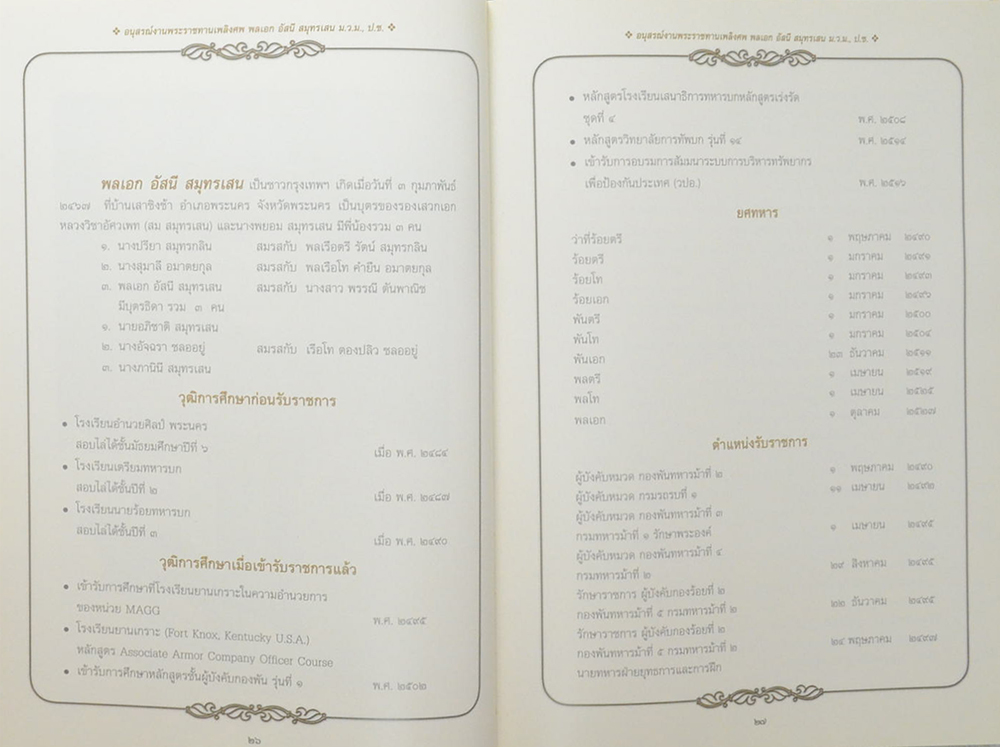 ❖ อนุสรณ์งานพระราชทานเพลิงศพ พลเอก อัสนี สมุทรเสน ม.ว.ม., ป.ช. ❖
พลเอก อัสนี สมุทรเสน เป็นชาวกรุงเทพฯ เกิดเมื่อวันที่ ๓ กุมภาพันธ์
๒๔๖๗ ที่บ้านเสาชิงช้า อำเภอพระนคร จังหวัดพระนคร เป็นบุตรของรองเสวกเอก
หลวงวิชาอัศวเพท (สม สมุทรเสน) และนางพยอม สมุทรเสน มีพี่น้องรวม ๓ คน
๑. นางปรียา สมุทรกลิน สมรสกับ พลเรือตรี รัตน์ สมุทรกลิน
๒. นางสุมาลี อมาตยกุล สมรสกับ พลเรือโท คำยืน อมาตยกุล
๓. พลเอก อัสนี สมุทรเสน สมรสกับ นางสาว พรรณี ตันพาณิช
มีบุตรธิดา รวม ๓ คน
๑. นายอภิชาติ สมุทรเสน
๒. นางอัจฉรา ชลออยู่ สมรสกับ เรือโท ดองปลิว ชลออยู่
๓. นางภานินี สมุทรเสน
วุฒิการศึกษาก่อนรับราชการ
• โรงเรียนอำนวยศิลป์ พระนคร
สอบไล่ได้ชั้นมัธยมศึกษาปีที่ ๖ เมื่อ พ.ศ. ๒๔๘๔
• โรงเรียนเตรียมทหารบก
สอบไล่ได้ชั้นปีที่ ๒ เมื่อ พ.ศ. ๒๔๘๗
• โรงเรียนนายร้อยทหารบก
สอบไล่ได้ชั้นปีที่ ๓ เมื่อ พ.ศ. ๒๔๙๐
วุฒิการศึกษาเมื่อเข้ารับราชการแล้ว
• เข้ารับการศึกษาที่โรงเรียนยานเกราะในความอำนวยการ
ของหน่วย MAGG พ.ศ. ๒๔๙๕
• โรงเรียนยานเกราะ (Fort Knox, Kentucky U.S.A.)
หลักสูตร Associate Armor Company Officer Course
• เข้ารับการศึกษาหลักสูตรชั้นผู้บังคับกองพัน รุ่นที่ ๑ พ.ศ. ๒๕๐๒
๒๖
❖ อนุสรณ์งานพระราชทานเพลิงศพ พลเอก อัสนี สมุทรเสน ม.ว.ม., ป.ช. ❖
• หลักสูตรโรงเรียนเสนาธิการทหารบกหลักสูตรเร่งรัด
ชุดที่ ๔ พ.ศ. ๒๕๐๘
• หลักสูตรวิทยาลัยการทัพบก รุ่นที่ ๑๔ พ.ศ. ๒๕๑๔
• เข้ารับการอบรมการสัมมนาระบบการบริหารทรัพยากร
เพื่อป้องกันประเทศ (วปอ.) พ.ศ. ๒๕๑๖
ยศทหาร
ว่าที่ร้อยตรี ๑ พฤษภาคม ๒๔๙๐
ร้อยตรี ๑ มกราคม ๒๔๙๑
ร้อยโท ๑ มกราคม ๒๔๙๓
ร้อยเอก ๑ มกราคม ๒๔๙๖
พันตรี ๑ มกราคม ๒๕๐๐
พันโท ๑ มกราคม ๒๕๐๔
พันเอก ๒๓ ธันวาคม ๒๕๑๑
พลตรี ๑ เมษายน ๒๕๑๙
พลโท ๑ เมษายน ๒๕๒๕
พลเอก ๑ ตุลาคม ๒๕๒๗
ตำแหน่งรับราชการ
ผู้บังคับหมวด กองพันทหารม้าที่ ๒ ๑ พฤษภาคม ๒๔๙๐
ผู้บังคับหมวด กรมรถรบที่ ๑ ๑๑ เมษายน ๒๔๙๒
ผู้บังคับหมวด กองพันทหารม้าที่ ๓
กรมทหารม้าที่ ๑ รักษาพระองค์ ๑ เมษายน ๒๔๙๕
ผู้บังคับหมวด กองพันทหารม้าที่ ๔
กรมทหารม้าที่ ๒ ๒๙ สิงหาคม ๒๔๙๕
รักษาราชการ ผู้บังคับกองร้อยที่ ๒
กองพันทหารม้าที่ ๕ กรมทหารม้าที่ ๒ ๒๒ ธันวาคม ๒๔๙๕
รักษาราชการ ผู้บังคับกองร้อยที่ ๒
กองพันทหารม้าที่ ๕ กรมทหารม้าที่ ๒ ๒๔ พฤษภาคม ๒๔๙๗
นายทหารฝ่ายยุทธการและการฝึก
๒๗